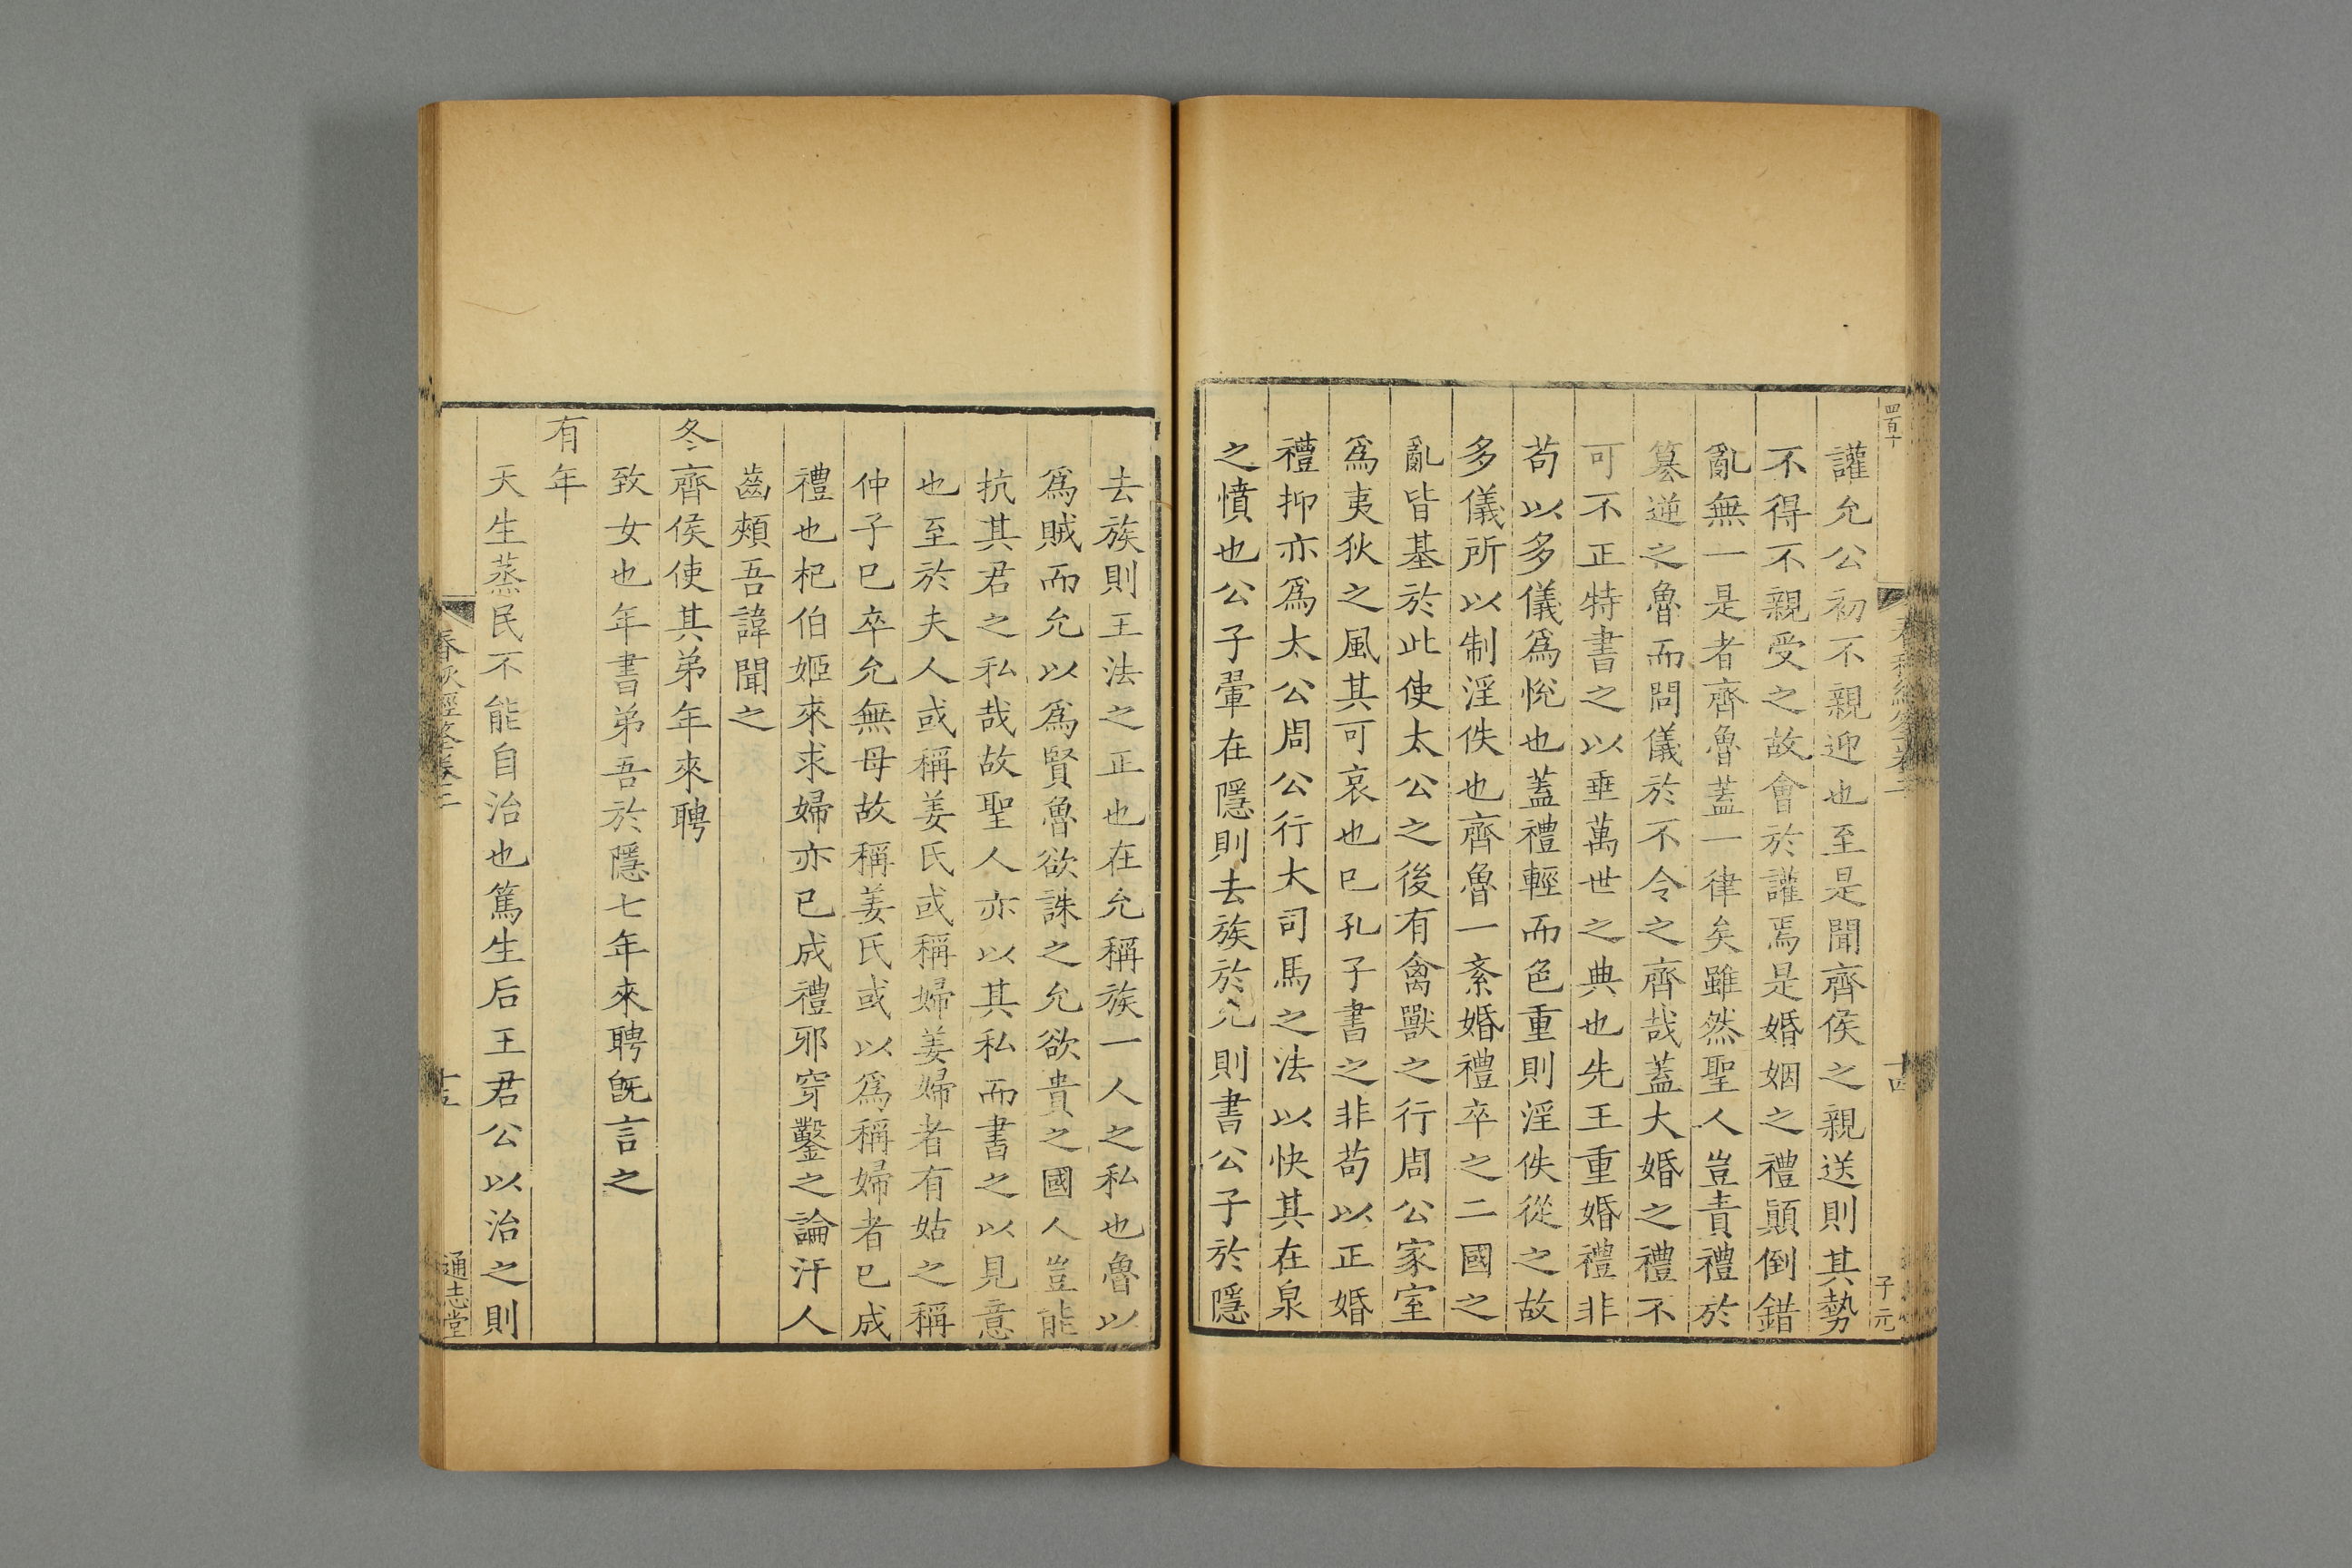 四百十
讙允公初不親迎也至是聞齊侯之親送則其勢
不得不親受之故會於讙焉是婚姻之禮顛倒錯
亂無一是者齊魯蓋一律矣雖然聖人豈責禮於
簒逆之魯而問儀於不令之齊哉蓋大婚之禮不
可不正特書之以垂萬世之典也先王重婚禮非
苟以多儀爲悅也蓋禮輕而色重則淫佚從之故
多儀所以制淫佚也齊魯一紊婚禮卒之二國之
亂皆基於此使太公之後有禽獸之行周公家室
爲夷狄之風其可哀也已孔子書之非苟以正婚
禮抑亦爲太公周公行大司馬之法以快其在泉
之憤也公子翬在隱則去族於允則書公子於隱
十四
子元
去族則王法之正也在允稱族一人之私也魯以
爲賊而允以爲賢魯欲誅之允欲貴之國人豈能
抗其君之私哉故聖人亦以其私而書之以見意
也至於夫人或稱姜氏或稱婦姜婦者有姑之稱
仲子已卒允無母故稱姜氏或以爲稱婦者已成
禮也杞伯姬來求婦亦已成禮邪穿鑿之論汙人
齒頰吾諱聞之
冬齊侯使其弟年來聘
致女也年書弟吾於隱七年來聘旣言之
有年
天生蒸民不能自治也篤生后王君公以治之則
春秋經筌卷二
十五
通志堂